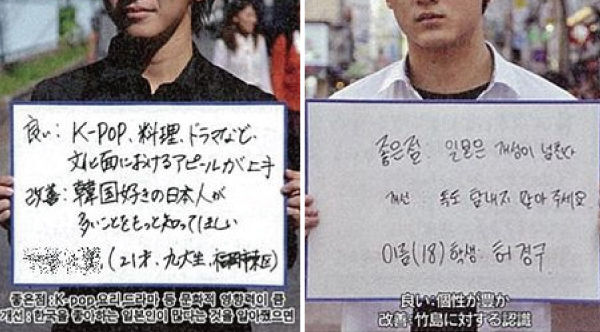 良い: K-POP、料理、ドラマなど、
文化面におけるアピールが上手
改善: 韓国好きの日本人が
多いことをもっと知ってほしい
(21才・九大生 福岡市東区)
좋은점:K-pop,요리,드라마 등 문화적 영향력이 큼
개선:한국을 좋아하는 일본인이 많다는 것을 알아줬으면
좋은점. 일본은 개성이 넘친다
개선 독도 탐내지 말아 주세요
이름(18) 학생. 허경구
良い: 個性が豊か
改善: 竹島に対する認識